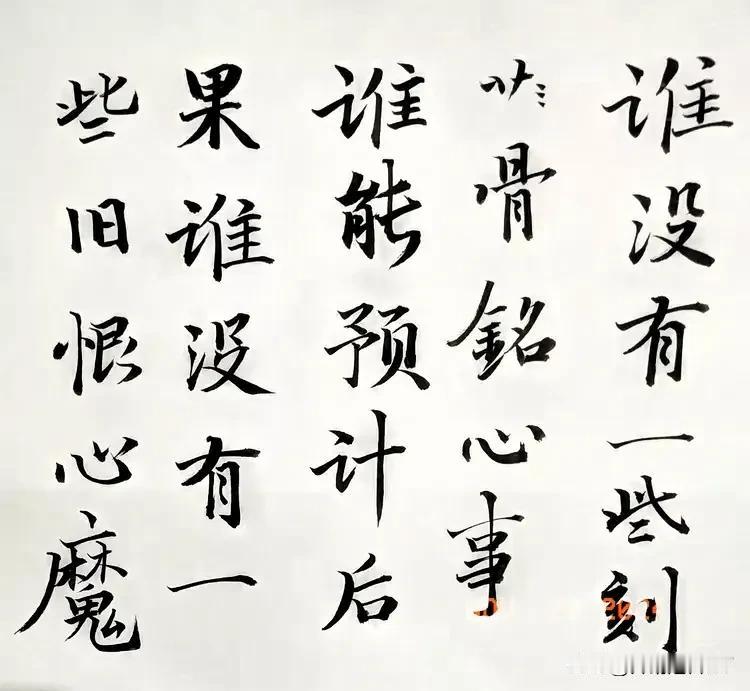 谁没有一些刻
骨銘心事
谁能预计后
果谁没有一
些旧恨心魔